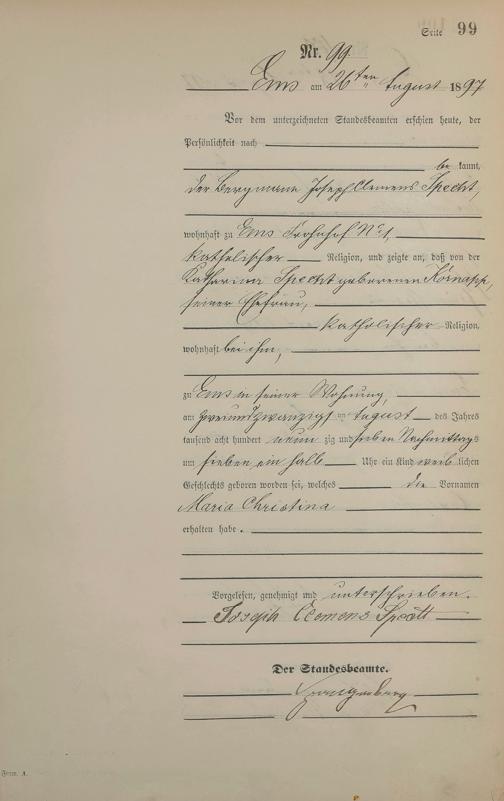 Seite 99
Nr. 99
Ems am 26ten August 1897
Vor dem unterzeichneten Standesbeamten erschien heute, der
Persönlichkeit nach
be kannt,
der Bergmann Joseph Clemens Specht,
wohnhaft zu Ems Frohnhof No 1,
katholischer Religion, und zeigte an, daß von der
Katharina Specht geborenen
seiner Ehefrau,
katholischer Religion,
wohnhaft bei ihm,
zu Ems in seiner Wohnung,
am zweiundzwanzigsten August des Jahres
tausend acht hundert neun zig und sieben Nachmittags
um sieben ein halb Uhr ein Kind weib lichen
Geschlechts geboren worden sei, welches die Vornamen
Maria Christina
erhalten habe.
Vorgelesen, genehmigt und unterschrieben.
Joseph Clemens Specht
Der Standesbeamte.
Form. A.